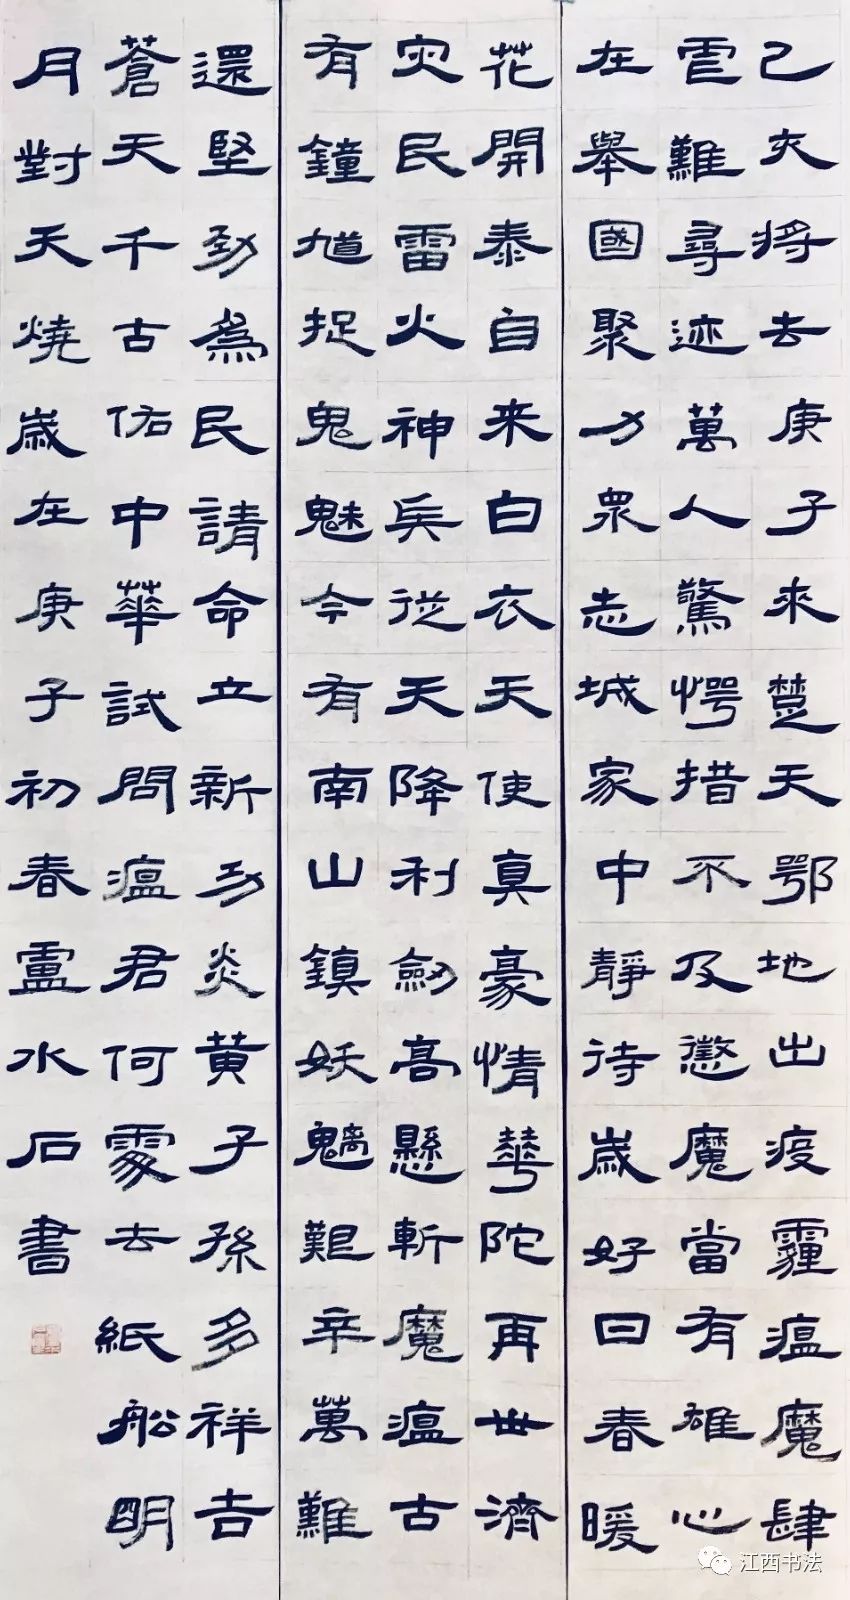 己亥將去庚子來楚天鄂地出疫霾瘟魔肆
虐難尋迹萬人驚愕措不及懲魔當有雄心
在舉國聚力眾志城家中靜待歲好日春暖
花開泰自来白衣天使真豪情華陀再世濟
灾民雷火神兵從天降利劍高懸斬魔瘟古
有鐘馗捉鬼魅今有南山鎮妖魑艱辛萬難
還堅勁為民請命立新功炎黄子孫多祥吉
蒼天千古佑中華試問瘟君何處去紙船明
月對天燒歲在庚子初春盧水石書
江西书法